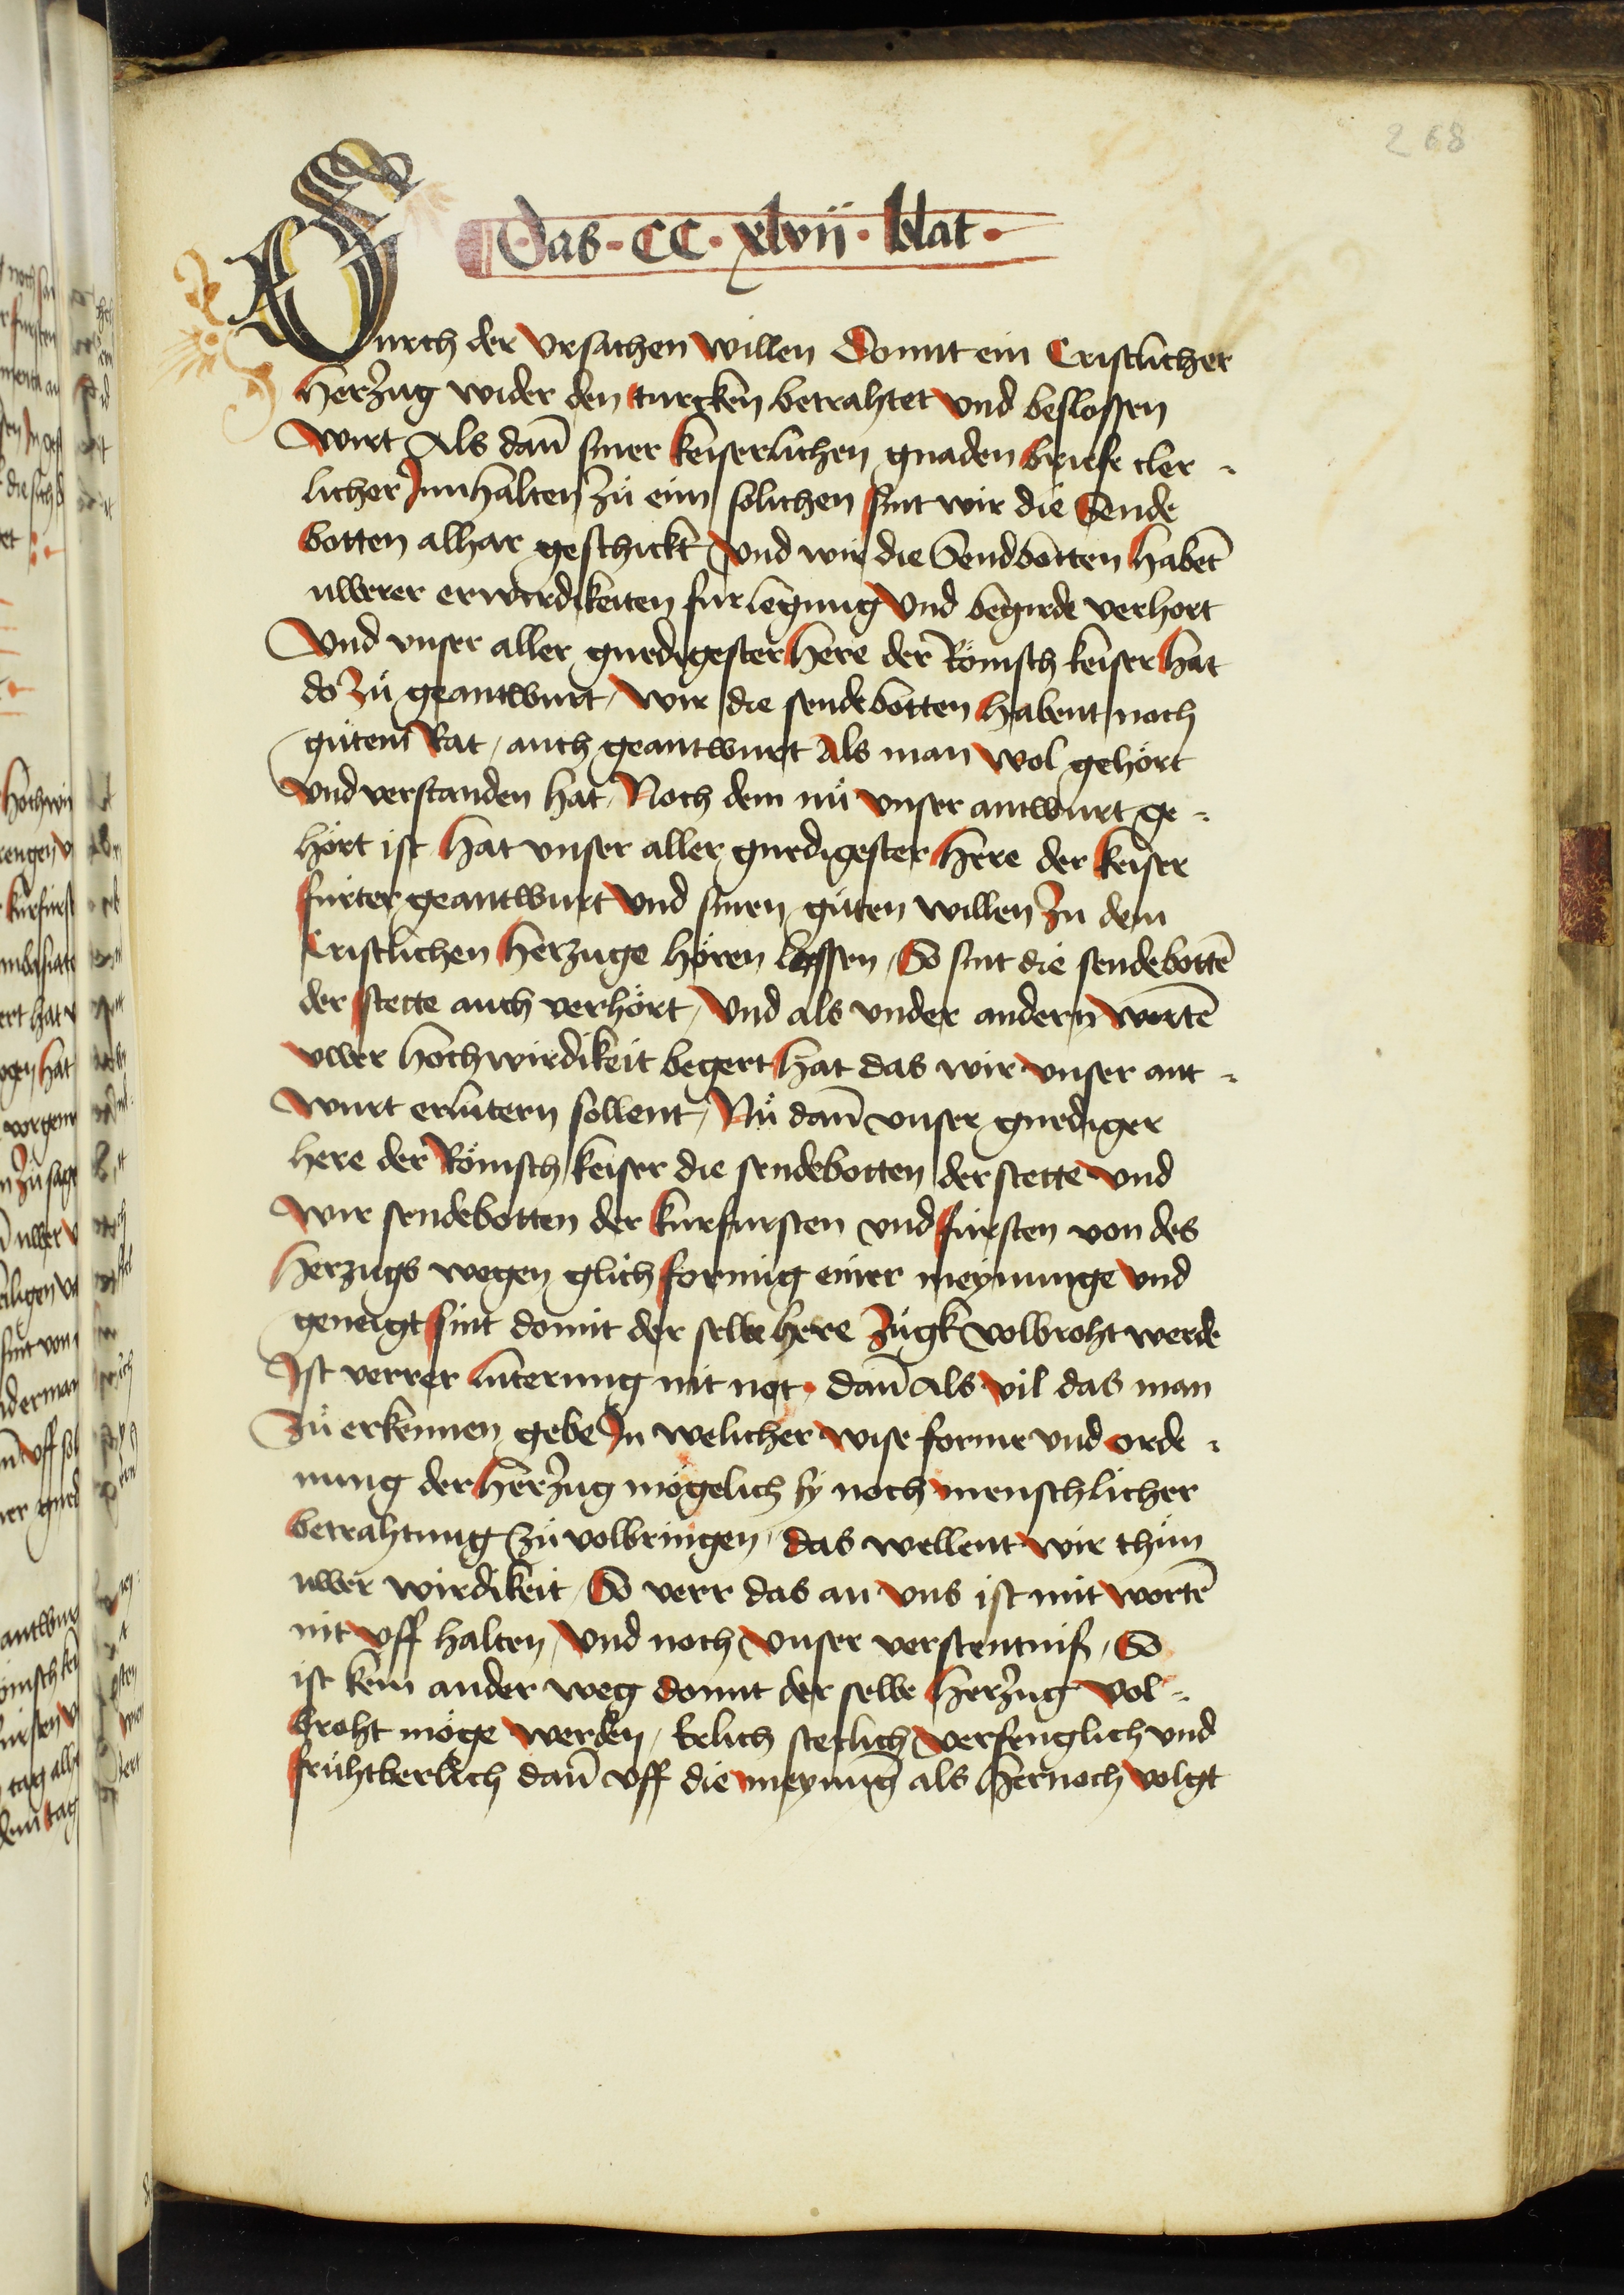 268
Das · CC · xlvii · blat ·
Durch der ursachen willen Domit ein Cristlicher
herzug wider den turcken betrahtet und beslossen
wirt Als dan̄ siner keiserlichen gnaden briefe cler -
licher Innhalten zů eim solichen sint wir die Sende
botten alhar geschickt und wir die Sendbotten habet
uwerer erwirdikeiten furlegung und begirde verhort
Und unser aller gnedigester here der Römisch keiser hat
do zů geantwurt, wir die sendebotten habent noch
gůtem Rat, auch geantwurt Als man wol gehört
und verstanden hat, Noch dem nů unser antwurt ge -
hört ist hat unser aller gnedigester here der keiser
fürter geantwurt und sinen gůten willen zu dem
Cristlichen herzuge hören lossen, So sint die sendebottē
der stette auch verhört, Und als under andern wortē
uwer hochwirdikeit begert hat das wir unser ant -
wurt erlutern sollent, Nů dan̄ unser gnediger
here der Römisch keiser die sendebotten der stette und
wir sendebotten der kurfursten und fürsten von des
herzugs wegen glich formig einer meynunge und
geneigt sint domit der selbe here zugk volbroht werde
Ist verrer luterung nit not, dan̄ als vil das man
zů erkennen gebe In welicher wise forme und orde -
nung der herzug mögelich sy noch menschlicher
betrahtung zů volbringen, das wellent wir thůn
uwer wirdikeit, So verr das an uns ist mit wortē
nit uff halten, Und noch unser verstentniß, So
ist kein ander weg domit der selbe herzug vol -
broht möge werden, Erlich stetlich verfenglich und
frühtberlich dan̄ uff die meynūg als hernoch volgt